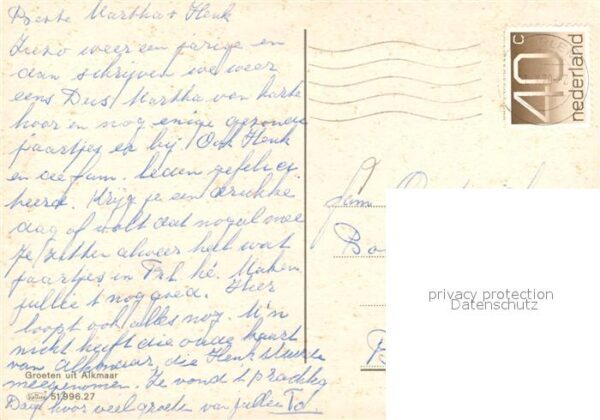 Beste Martha + Henk
Zuzo weer een jarige en
dan schrijven we weer
eens Dus, Martha van harte
hoor en nog enige gezonde
jaartjes er bij. Ook Henk
en de fam. leden gefelici-
teerd. Krijg je een drukke
dag of valt dat nogal mee
Je zitten alweer heel wat
jaartjes in hé. Maken
jullie 't nog goed. Hier
loopt ook alles nog. M'n
nicht heeft die oude kaart
van Alkmaar, die Henk stuurde
meegenomen. Ze vond 't prachtig
Daag hoor veel groeten van jullie
Groeten uit Alkmaar
51.996.27
40 c
nederland
fam
privacy protection
Datenschutz